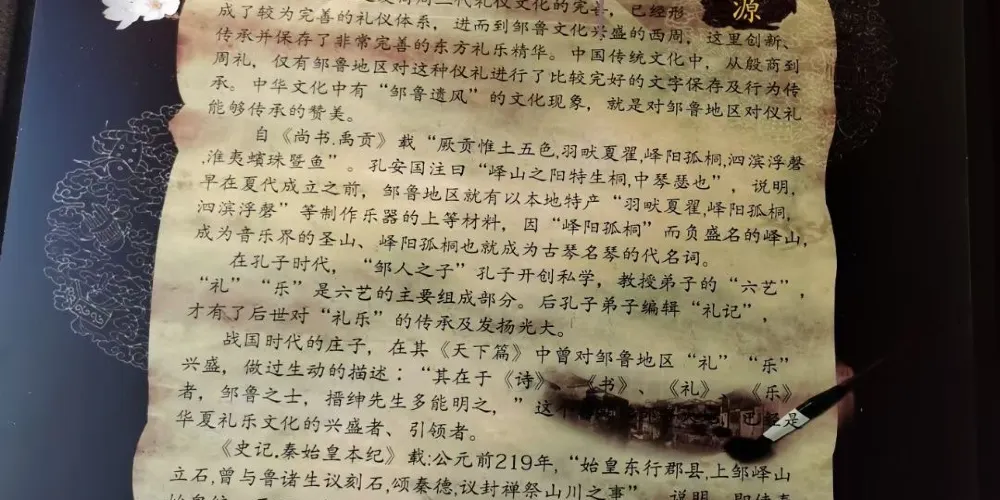 源
代礼仪文化的完善，已经形
成了较为完善的礼仪体系，进而到邹鲁文化兴盛的西周，这里创新、
传承并保存了非常完善的东方礼乐精华。中国传统文化中，从殷商到
周礼，仅有邹鲁地区对这种仪礼进行了比较完好的文字保存及行为传
承。中华文化中有“邹鲁遗风”的文化现象，就是对邹鲁地区对仪礼
能够传承的赞美。
自《尚书.禹贡》载“厥贡惟土五色,羽畎夏翟,峄阳孤桐,泗滨浮磬
,淮夷蠙珠暨鱼”。孔安国注曰“峄山之阳特生桐,中琴瑟也”，说明，
早在夏代成立之前，邹鲁地区就有以本地特产“羽畎夏翟,峄阳孤桐,
泗滨浮磬”等制作乐器的上等材料，因“峄阳孤桐”而负盛名的峄山,
成为音乐界的圣山、峄阳孤桐也就成为古琴名琴的代名词。
在孔子时代，“邹人之子”孔子开创私学，教授弟子的“六艺”，
“礼”“乐”是六艺的主要组成部分。后孔子弟子编辑“礼记”，
才有了后世对“礼乐”的传承及发扬光大。
战国时代的庄子，在其《天下篇》中曾对邹鲁地区“礼”“乐”
兴盛，做过生动的描述：“其在于《诗》、《书》、《礼》、《乐》
者，邹鲁之士，搢绅先生多能明之，”这 已经是
华夏礼乐文化的兴盛者、引领者。
《史记.秦始皇本纪》载:公元前219年,“始皇东行郡县,上邹峄山
立石,曾与鲁诸生议刻石,颂秦德,议封禅祭山川之事”，说明，即使秦